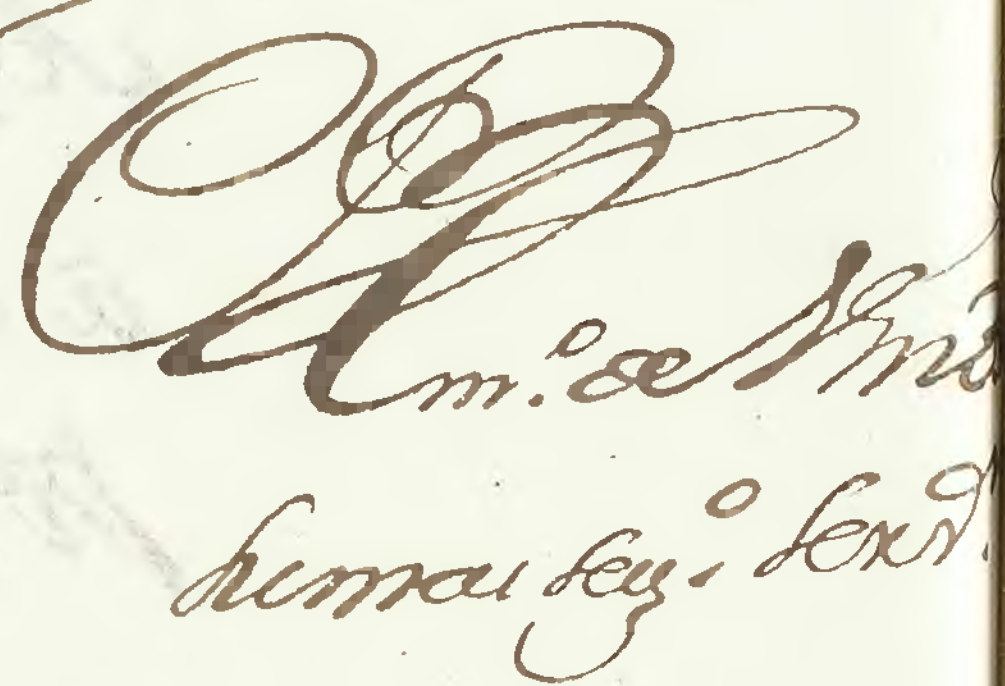 Am.º de Vm
su mas seg.º serv.